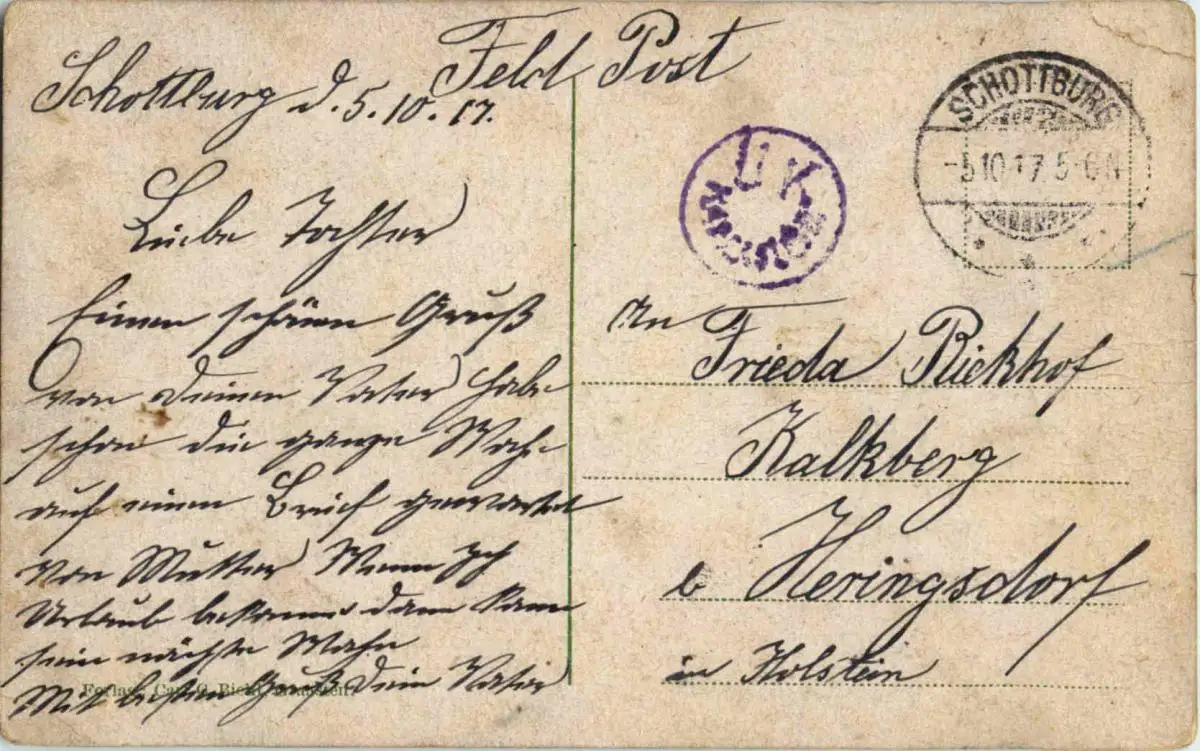 Feld Post
Schottburg d. 5.10.17.
Liebe Tochter
Einen schönen Gruß
von deinen Vater habe
schon die ganze Woche
auf einen Brief gewartet
von Mutter Wenn Ich
Urlaub bekomme dann kann
sein nächste Woche
Mit besten Gruß dein Vater
Verlag Carl
U K
SCHOTTBURG
-5.10.17. 5-6 N
An Frieda Rickhof
Kalkberg
b Heringsdorf
in Holstein